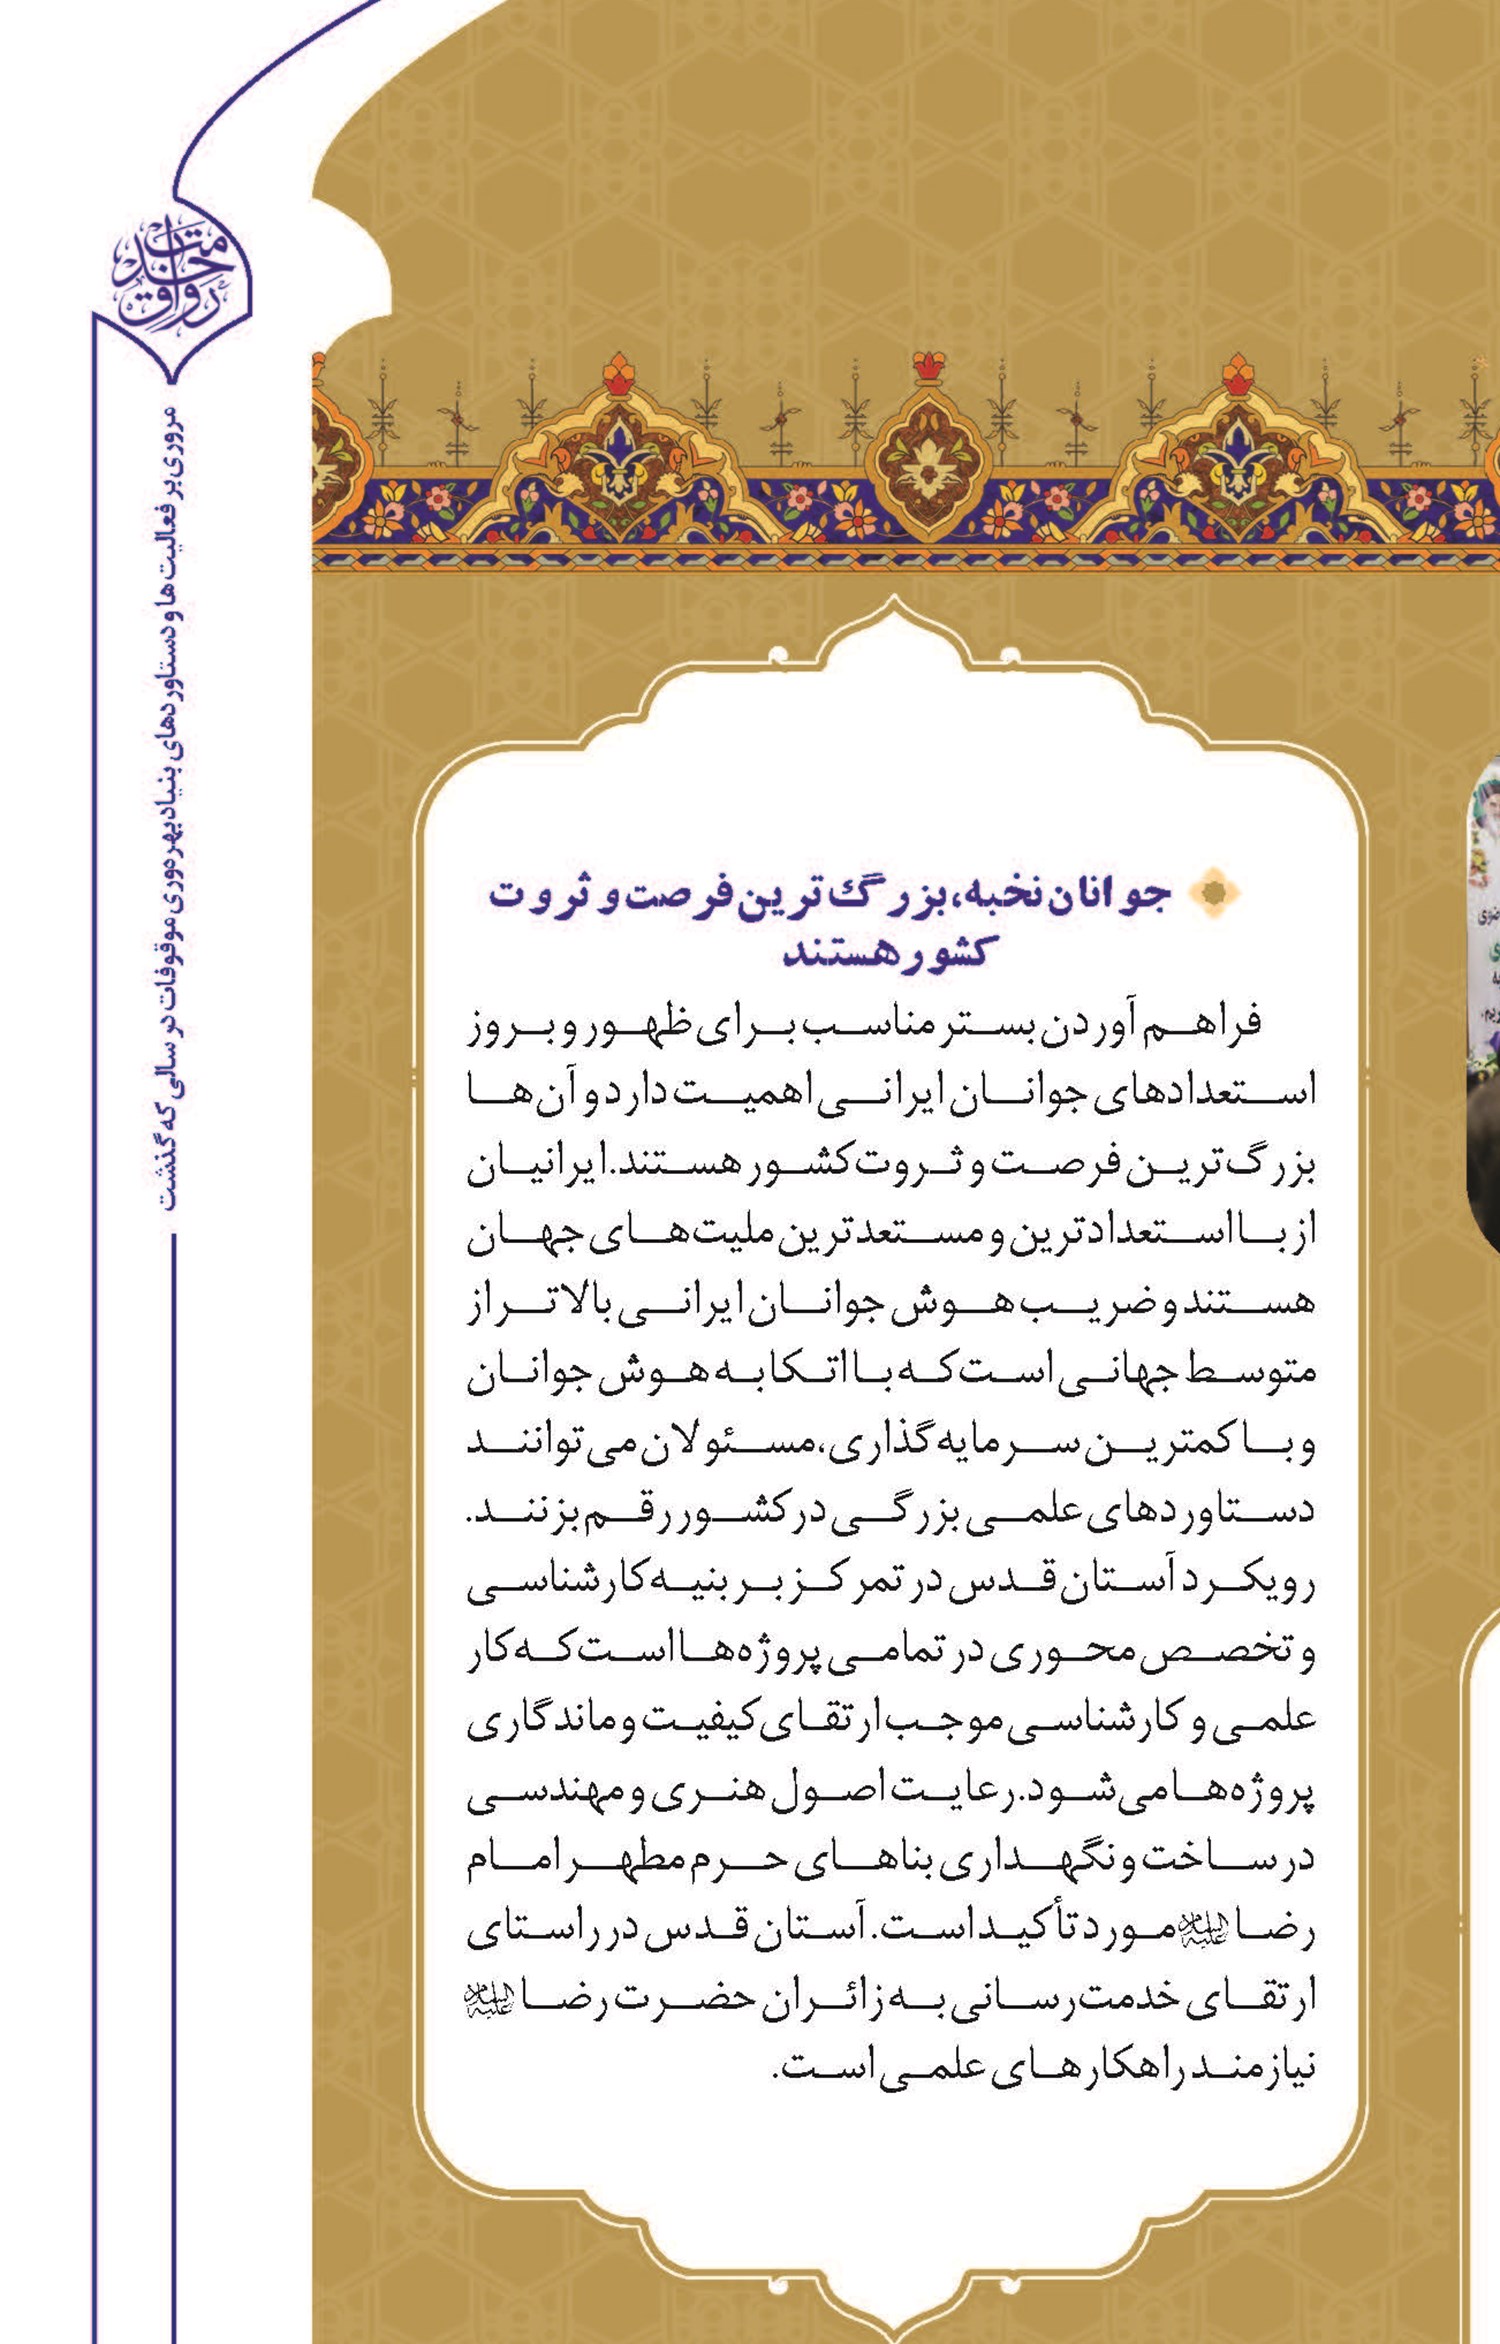 رواق خدمت
مروری بر فعالیت‌ها و دستاوردهای بنیاد بهره‌وری موقوفات در سالی که گذشت
جوانان نخبه، بزرگ‌ترین فرصت و ثروت
کشور هستند
فراهم آوردن بستر مناسب برای ظهور و بروز
استعدادهای جوانان ایرانی اهمیت دارد و آن‌ها
بزرگ‌ترین فرصت و ثروت کشور هستند. ایرانیان
از با استعدادترین و مستعدترین ملیت‌های جهان
هستند و ضریب هوش جوانان ایرانی بالاتر از
متوسط جهانی است که با اتکا به هوش جوانان
و با کمترین سرمایه‌گذاری، مسئولان می‌توانند
دستاوردهای علمی بزرگی در کشور رقم بزنند.
رویکرد آستان قدس در تمرکز بر بنیه کارشناسی
و تخصص محوری در تمامی پروژه‌ها است که کار
علمی و کارشناسی موجب ارتقای کیفیت و ماندگاری
پروژه‌ها می‌شود. رعایت اصول هنری و مهندسی
در ساخت و نگهداری بناهای حرم مطهر امام
رضا علیه‌السلام مورد تأکید است. آستان قدس در راستای
ارتقای خدمت‌رسانی به زائران حضرت رضا علیه‌السلام
نیازمند راهکارهای علمی است.